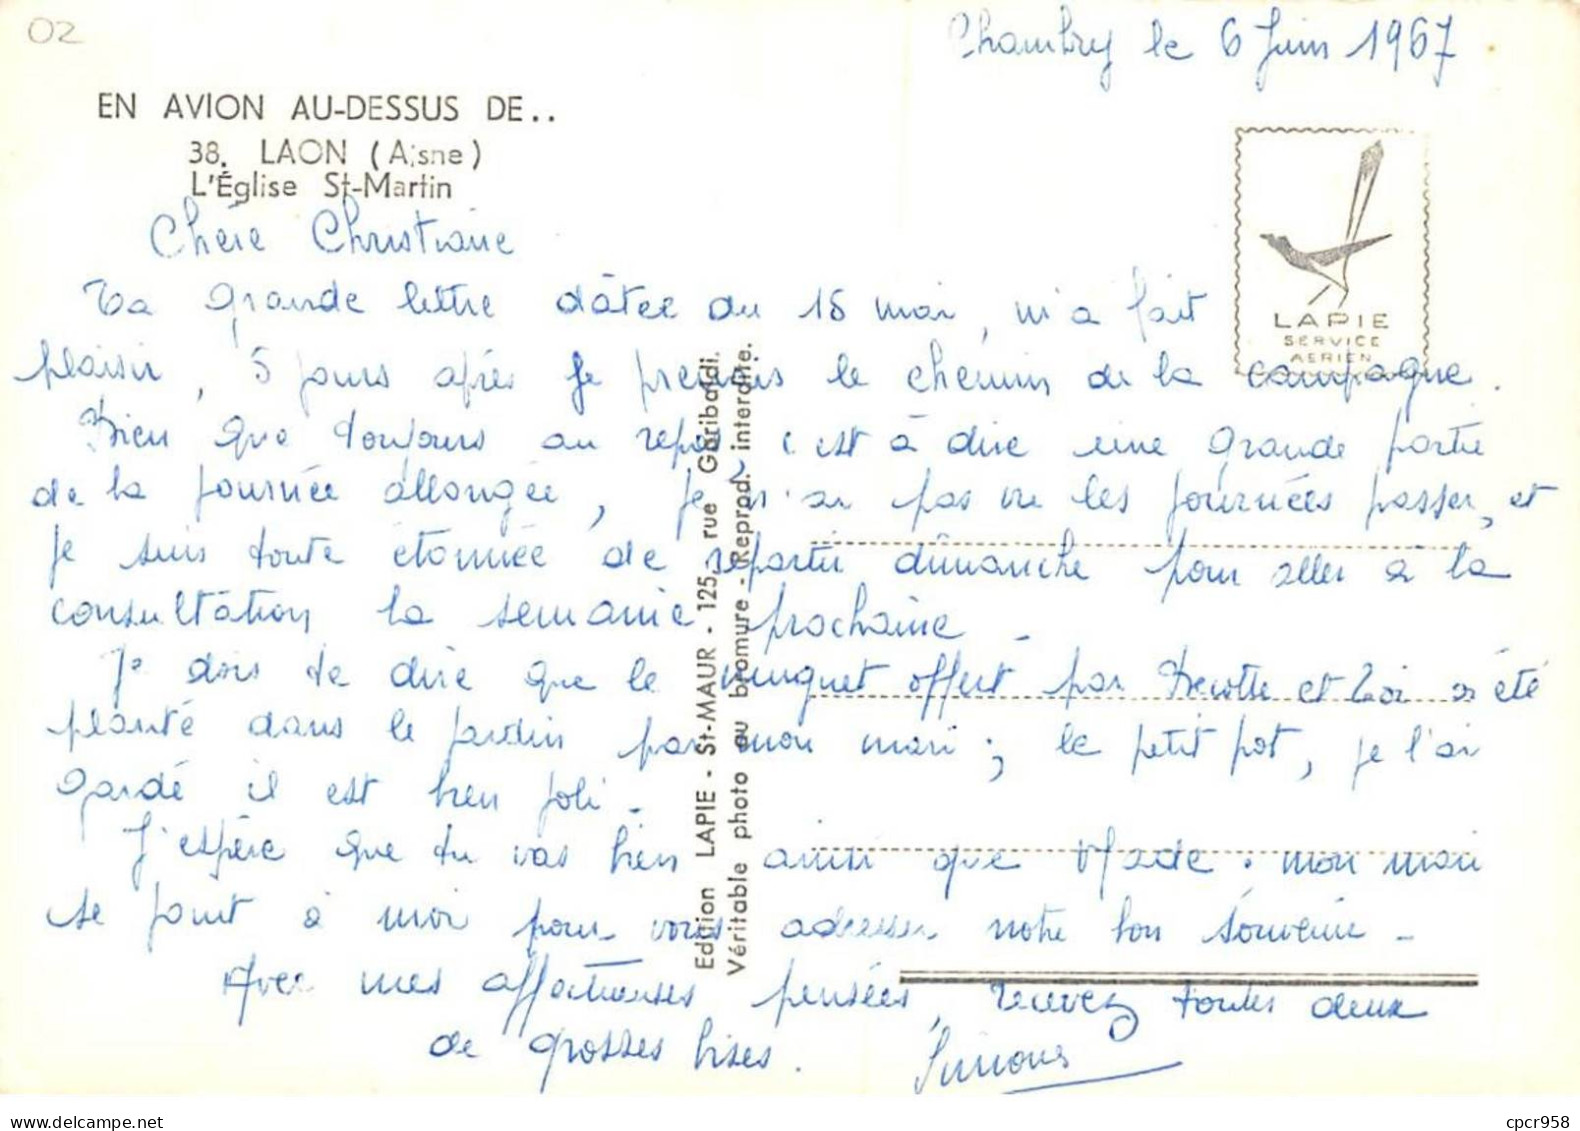 02
Chambry le 6 Juin 1967
EN AVION AU-DESSUS DE..
38. LAON (Aisne)
L'Église St-Martin
LAPIE
SERVICE
AERIEN
Chère Christiane
Ta grande lettre datée du 15 mai, m'a fait
plaisir, 5 jours après je prenais le chemin de la campagne.
Bien que toujours au repos, c'est à dire une grande partie
de la journée allongée, je n'ai pas vu les journées passer, et
je suis toute étonnée de repartir dimanche pour aller à la
consultation la semaine prochaine.
Je dois te dire que le muguet offert par et toi a été
planté dans le jardin par mon mari ; le petit pot, je l'ai
gardé il est bien joli.
J'espère que tu vas bien ainsi que . mon mari
se joint à moi pour vous adresser notre bon souvenir -
Avec mes affectueuses pensées, recevez toutes deux
de grosses bises.
Simone
Edition LAPIE - St-MAUR - 125, rue Garibaldi.
Véritable photo au bromure - Reprod. interdite.
cpcr958